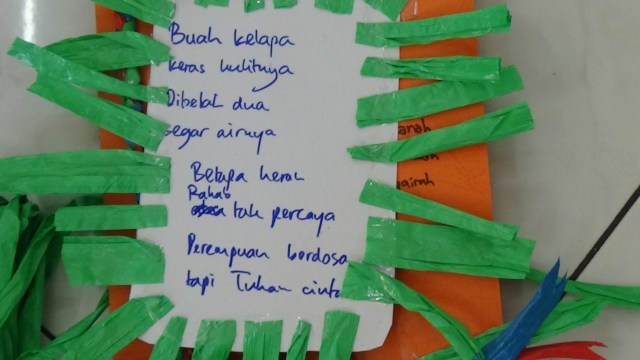 Buah kelapa
keras kulitnya
Dibelah dua
segar airnya
Betapa heran
Rahab
tak percaya
Perempuan berdosa
tapi Tuhan cinta